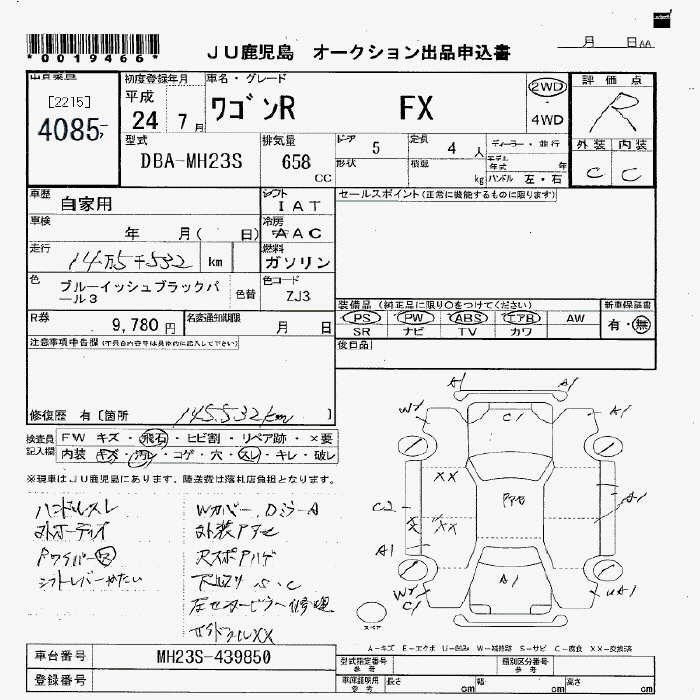 *0019466*
JU鹿児島 オークション出品申込書
月 日AA
[2215]
4085,-
初度登録年月
平成
24 7月
車名・グレード
ワゴンR FX
2WD
4WD
評価点
R
外装 内装
C C
型式
DBA-MH23S
排気量
658
CC
ドア 5
定員 4人
形状
積載 kg
ディーラー・並行
モデル年式 年
ハンドル 左・右
車歴
自家用
シフト
IAT
セールスポイント(正常に機能するものに限ります)
車検
年 月( 日)
冷房
AAC
走行
14万5千532 km
燃料
ガソリン
色
ブルーイッシュブラックパール3
色替
色コード
ZJ3
装備品 (純正品に限り○をつけてください)
PS PW ABS エアB AW
SR ナビ TV カワ
新車保証書
有・無
R券
9,780 円
名変通知期限
月 日
後日品
注意事項申告欄
修復歴 有〔箇所 145,532km 〕
検査員記入欄
FW キズ・飛石・ヒビ割・リペア跡・×要
内装 キズ・汚レ・コゲ・穴・スレ・キレ・破レ
※現車はJU鹿児島にあります、陸送費は落札店負担となります。
ハンドルスレ
Wカバー、DミラーA
外装アセ
シフトレバー
下回りサビ、C
左センターピラー修理
サイドシルXX
A1 A1
W1 C1 A1
XX
C2 A1
XX
A1
A1
W2 C1 uA1
スペア
A-キズ E-エクボ U-凹み W-補修跡 S-サビ C-腐食 XX-交換済
車台番号 MH23S-439850
登録番号
型式指定番号 参考
類別区分番号 参考
車庫証明用 参考
長さ cm 幅 cm 高さ cm